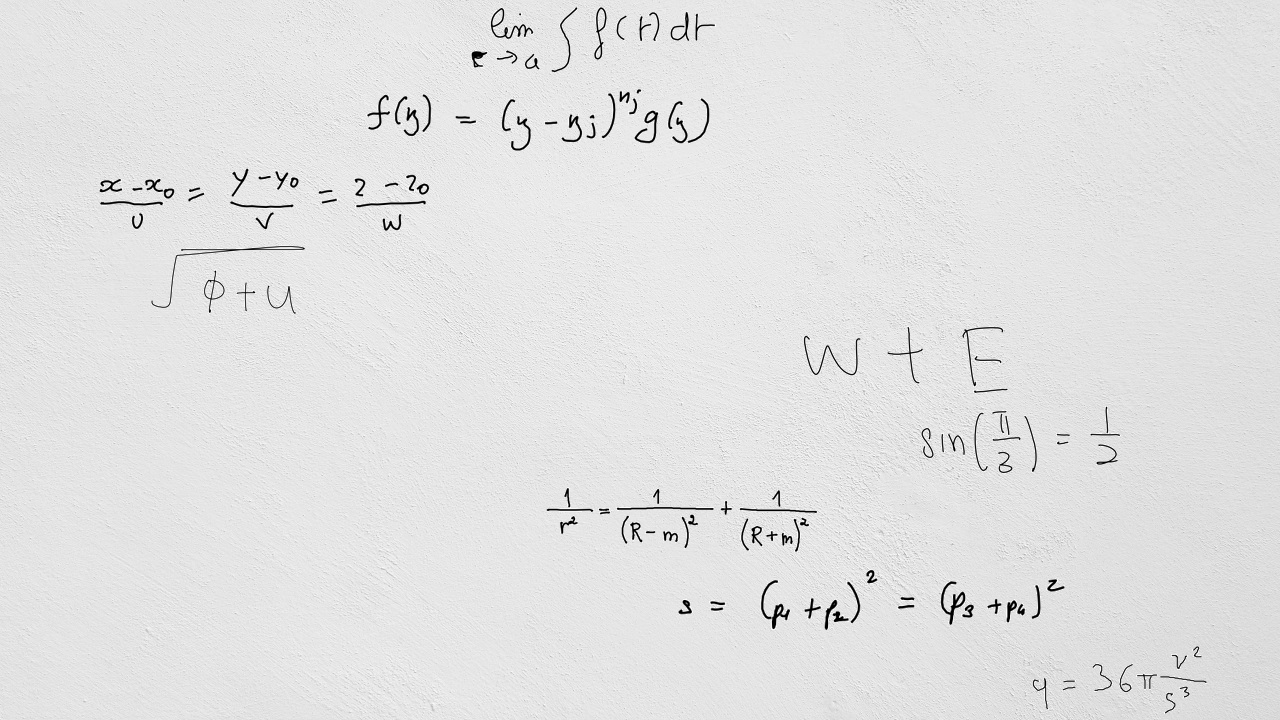 lim_{r→a} ∫ f(r) dr
f(z) = (z - z_j)^{n_j} g(z)
\frac{x - x_0}{U} = \frac{y - y_0}{V} = \frac{z - z_0}{W}
\sqrt{ϕ + u}
W + E
sin(\frac{π}{3}) = \frac{1}{2}
\frac{1}{r^2} = \frac{1}{(R - m)^2} + \frac{1}{(R + m)^2}
s = (p_1 + p_2)^2 = (p_3 + p_4)^2
q = 36π \frac{v^2}{s^3}